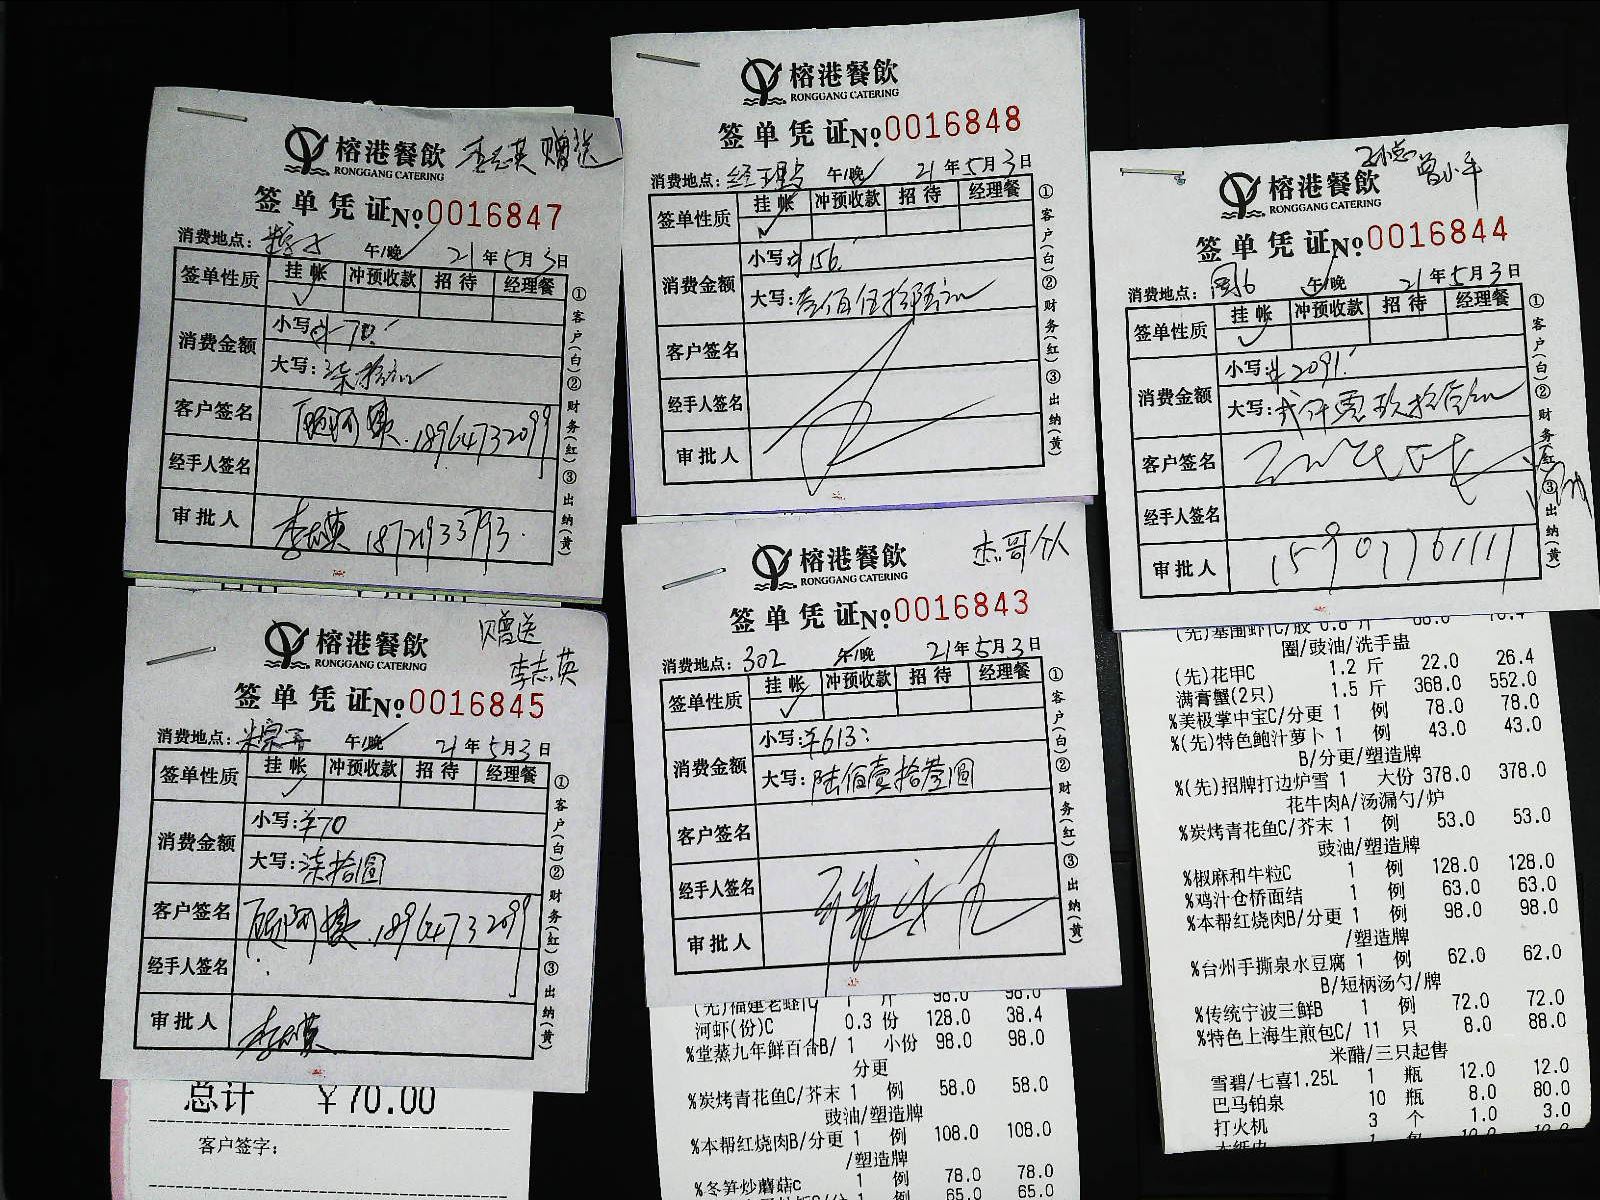 榕港餐飲 李志英 赠送
RONGGANG CATERING
签单凭证 No. 0016847
消费地点: 午/晚 21年5月3日
签单性质 挂帐 冲预收款 招待 经理餐
消费金额 小写: ¥70.
大写: 柒拾元
客户签名 18964732099
经手人签名
审批人 李志英 18721933793.
①客户(白)②财务(红)③出纳(黄)
榕港餐飲
RONGGANG CATERING
签单凭证 No. 0016848
消费地点: 午/晚 21年5月3日
签单性质 挂帐 冲预收款 招待 经理餐
消费金额 小写: ¥156.
大写: 壹佰伍拾陆元
客户签名
经手人签名
审批人
①客户(白)②财务(红)③出纳(黄)
曾小平
榕港餐飲
RONGGANG CATERING
签单凭证 No. 0016844
消费地点: 午/晚 21年5月3日
签单性质 挂帐 冲预收款 招待 经理餐
消费金额 小写: ¥2091.
大写: 贰仟零玖拾壹元
客户签名
经手人签名
审批人 15901761111
①客户(白)②财务(红)③出纳(黄)
赠送
李志英
榕港餐飲
RONGGANG CATERING
签单凭证 No. 0016845
消费地点: 午/晚 21年5月3日
签单性质 挂帐 冲预收款 招待 经理餐
消费金额 小写: ¥70
大写: 柒拾圆
客户签名 18964732099
经手人签名
审批人 李志英
①客户(白)②财务(红)③出纳(黄)
总计 ¥70.00
客户签字:
杰哥个人
榕港餐飲
RONGGANG CATERING
签单凭证 No. 0016843
消费地点: 302 午/晚 21年5月3日
签单性质 挂帐 冲预收款 招待 经理餐
消费金额 小写: ¥613.
大写: 陆佰壹拾叁圆
客户签名
经手人签名
审批人
①客户(白)②财务(红)③出纳(黄)
河虾(份)C 0.3 份 128.0 38.4
%堂蒸九年鲜百合B/ 1 小份 98.0 98.0
分更
%炭烤青花鱼C/芥末 1 例 58.0 58.0
豉油/塑造牌
%本帮红烧肉B/分更 1 例 108.0 108.0
/塑造牌
%冬笋炒蘑菇c 1 例 78.0 78.0
65.0 65.0
圈/豉油/洗手盅
(先)花甲C 1.2 斤 22.0 26.4
满膏蟹(2只) 1.5 斤 368.0 552.0
%美极掌中宝C/分更 1 例 78.0 78.0
%(先)特色鲍汁萝卜 1 例 43.0 43.0
B/分更/塑造牌
%(先)招牌打边炉雪 1 大份 378.0 378.0
花牛肉A/汤漏勺/炉
%炭烤青花鱼C/芥末 1 例 53.0 53.0
豉油/塑造牌
%椒麻和牛粒C 1 例 128.0 128.0
%鸡汁仓桥面结 1 例 63.0 63.0
%本帮红烧肉B/分更 1 例 98.0 98.0
/塑造牌
%台州手撕泉水豆腐 1 例 62.0 62.0
B/短柄汤勺/牌
%传统宁波三鲜B 1 例 72.0 72.0
%特色上海生煎包C/ 11 只 8.0 88.0
米醋/三只起售
雪碧/七喜1.25L 1 瓶 12.0 12.0
巴马铂泉 10 瓶 8.0 80.0
打火机 3 个 1.0 3.0